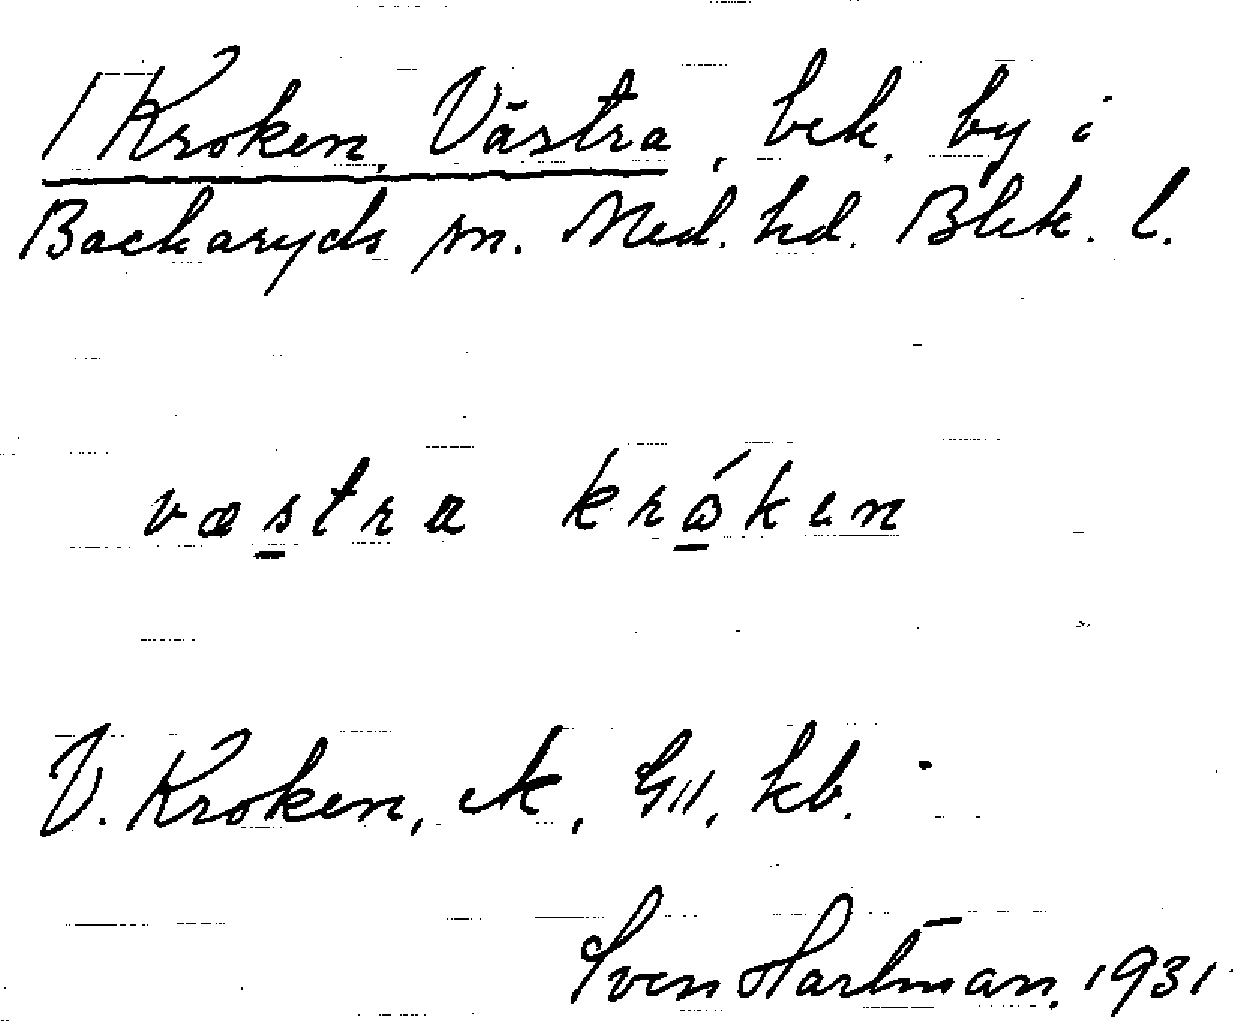 Kroken, Västra, bek. by i
Backaryds sn. Med. hd. Blek. l.
væstra kråken
V. Kroken, ek, GII, kb.
Sven Hartman. 1931